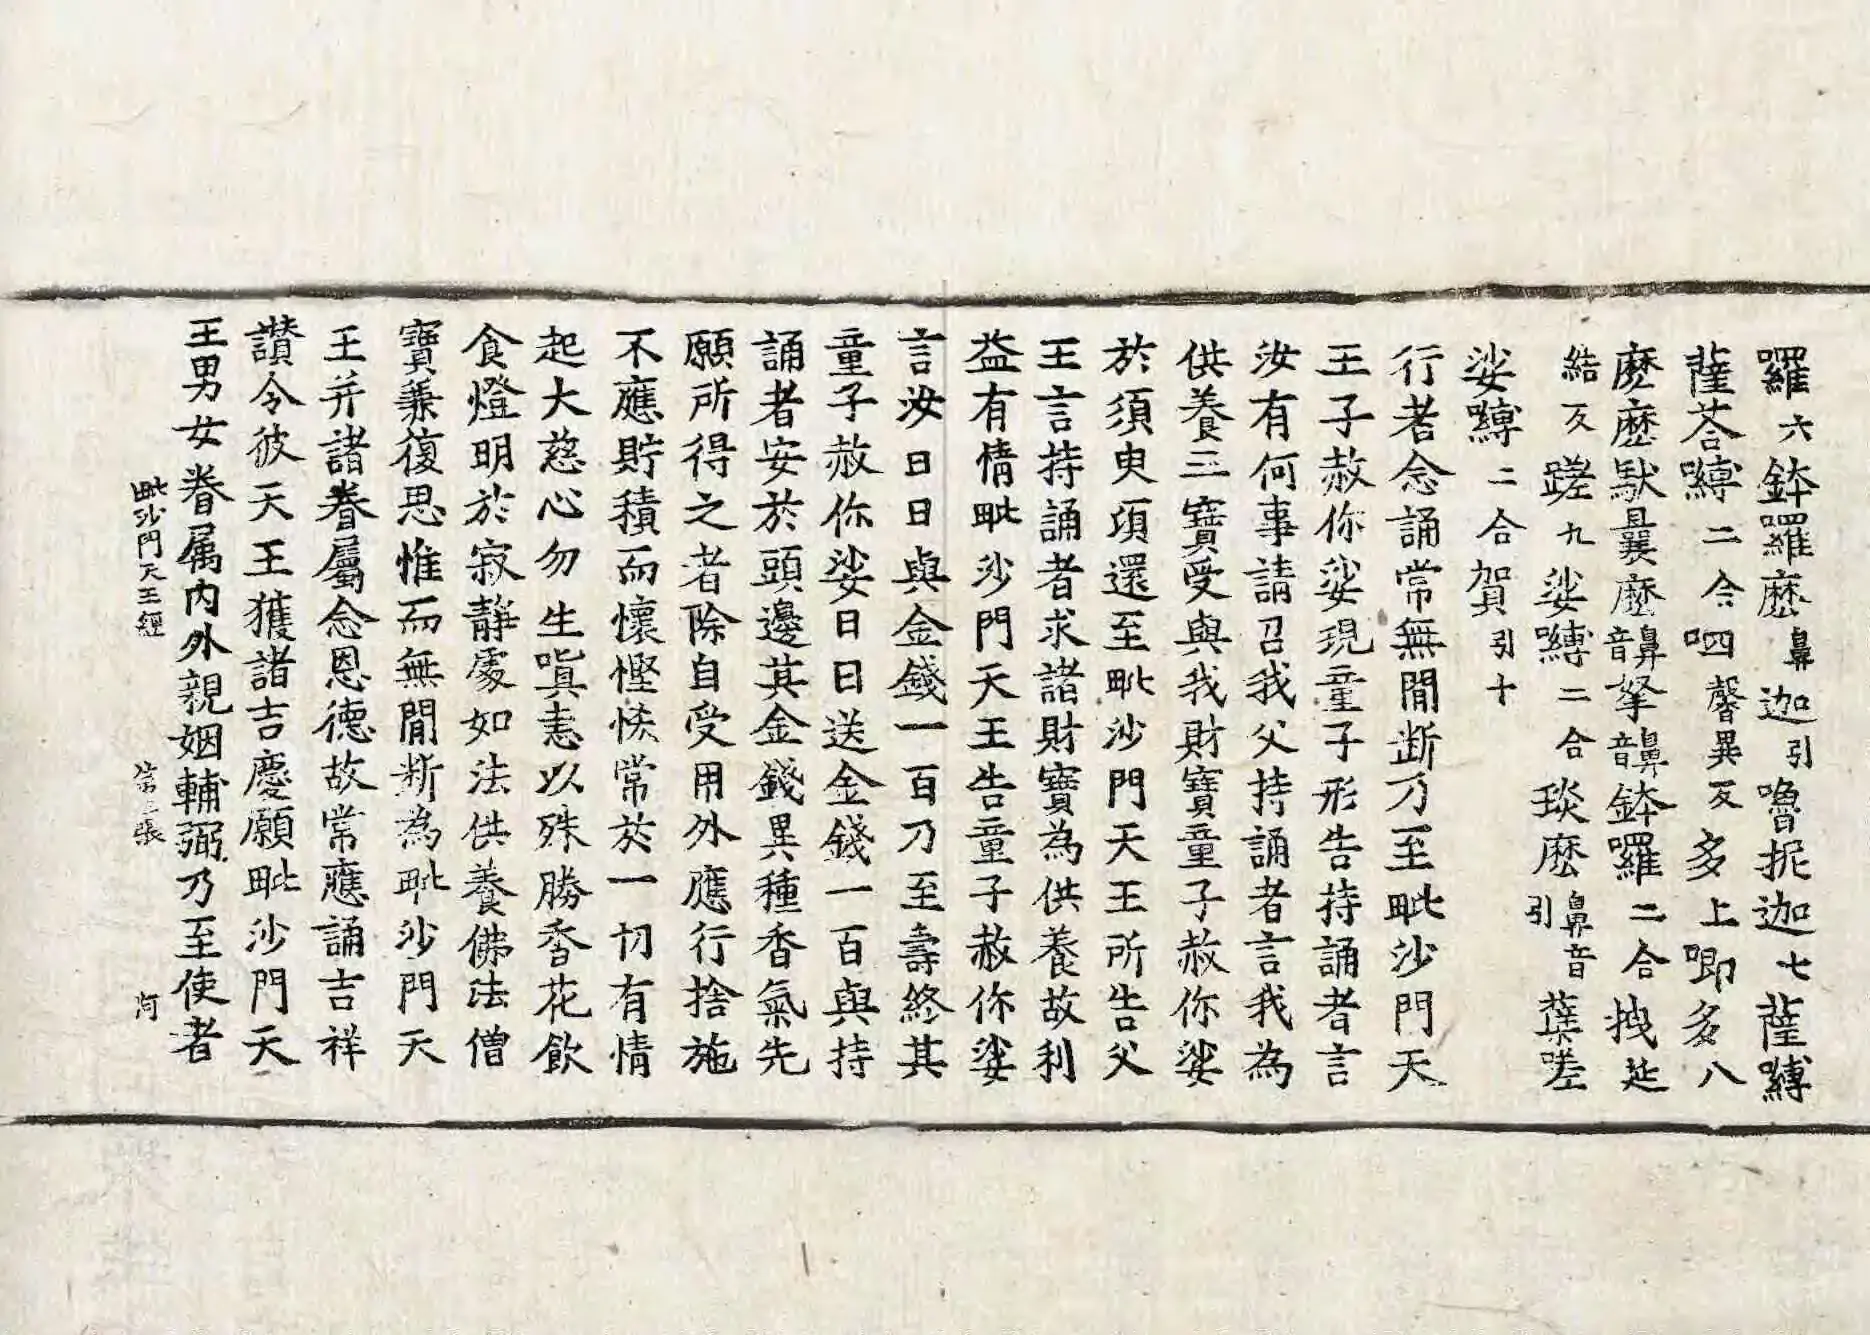 囉六鉢羅麽鼻迦引嚕抳迦七薩嚩
薩荅嚩二合呬馨異反多上唧多八
麽麽馱曩麽鼻音拏鼻音鉢囉二合拽近
結反蹉九娑嚩二合琰麽引鼻音蘗嗟
娑嚩二合賀引十
行者念誦常無間断乃至毗沙門天
王子赦你娑現童子形告持誦者言
汝有何事請召我父持誦者言我為
供養三寶受與我財寶童子赦你娑
於須臾頃還至毗沙門天王所告父
王言持誦者求諸財寶為供養故利
益有情毗沙門天王告童子赦你娑
言汝日日與金錢一百乃至壽終其
童子赦你娑日日送金錢一百與持
誦者安於頭邊其金錢異種香氣先
願所得之者除自受用外應行捨施
不應貯積而懷慳悋常於一切有情
起大慈心勿生嗔恚以殊勝香花飲
食燈明於寂靜處如法供養佛法僧
寶兼復思惟而無間断為毗沙門天
王并諸眷屬念恩德故常應誦吉祥
讃令彼天王獲諸吉慶願毗沙門天
王男女眷属内外親姻輔弼乃至使者
毗沙門天王經 第三張 河